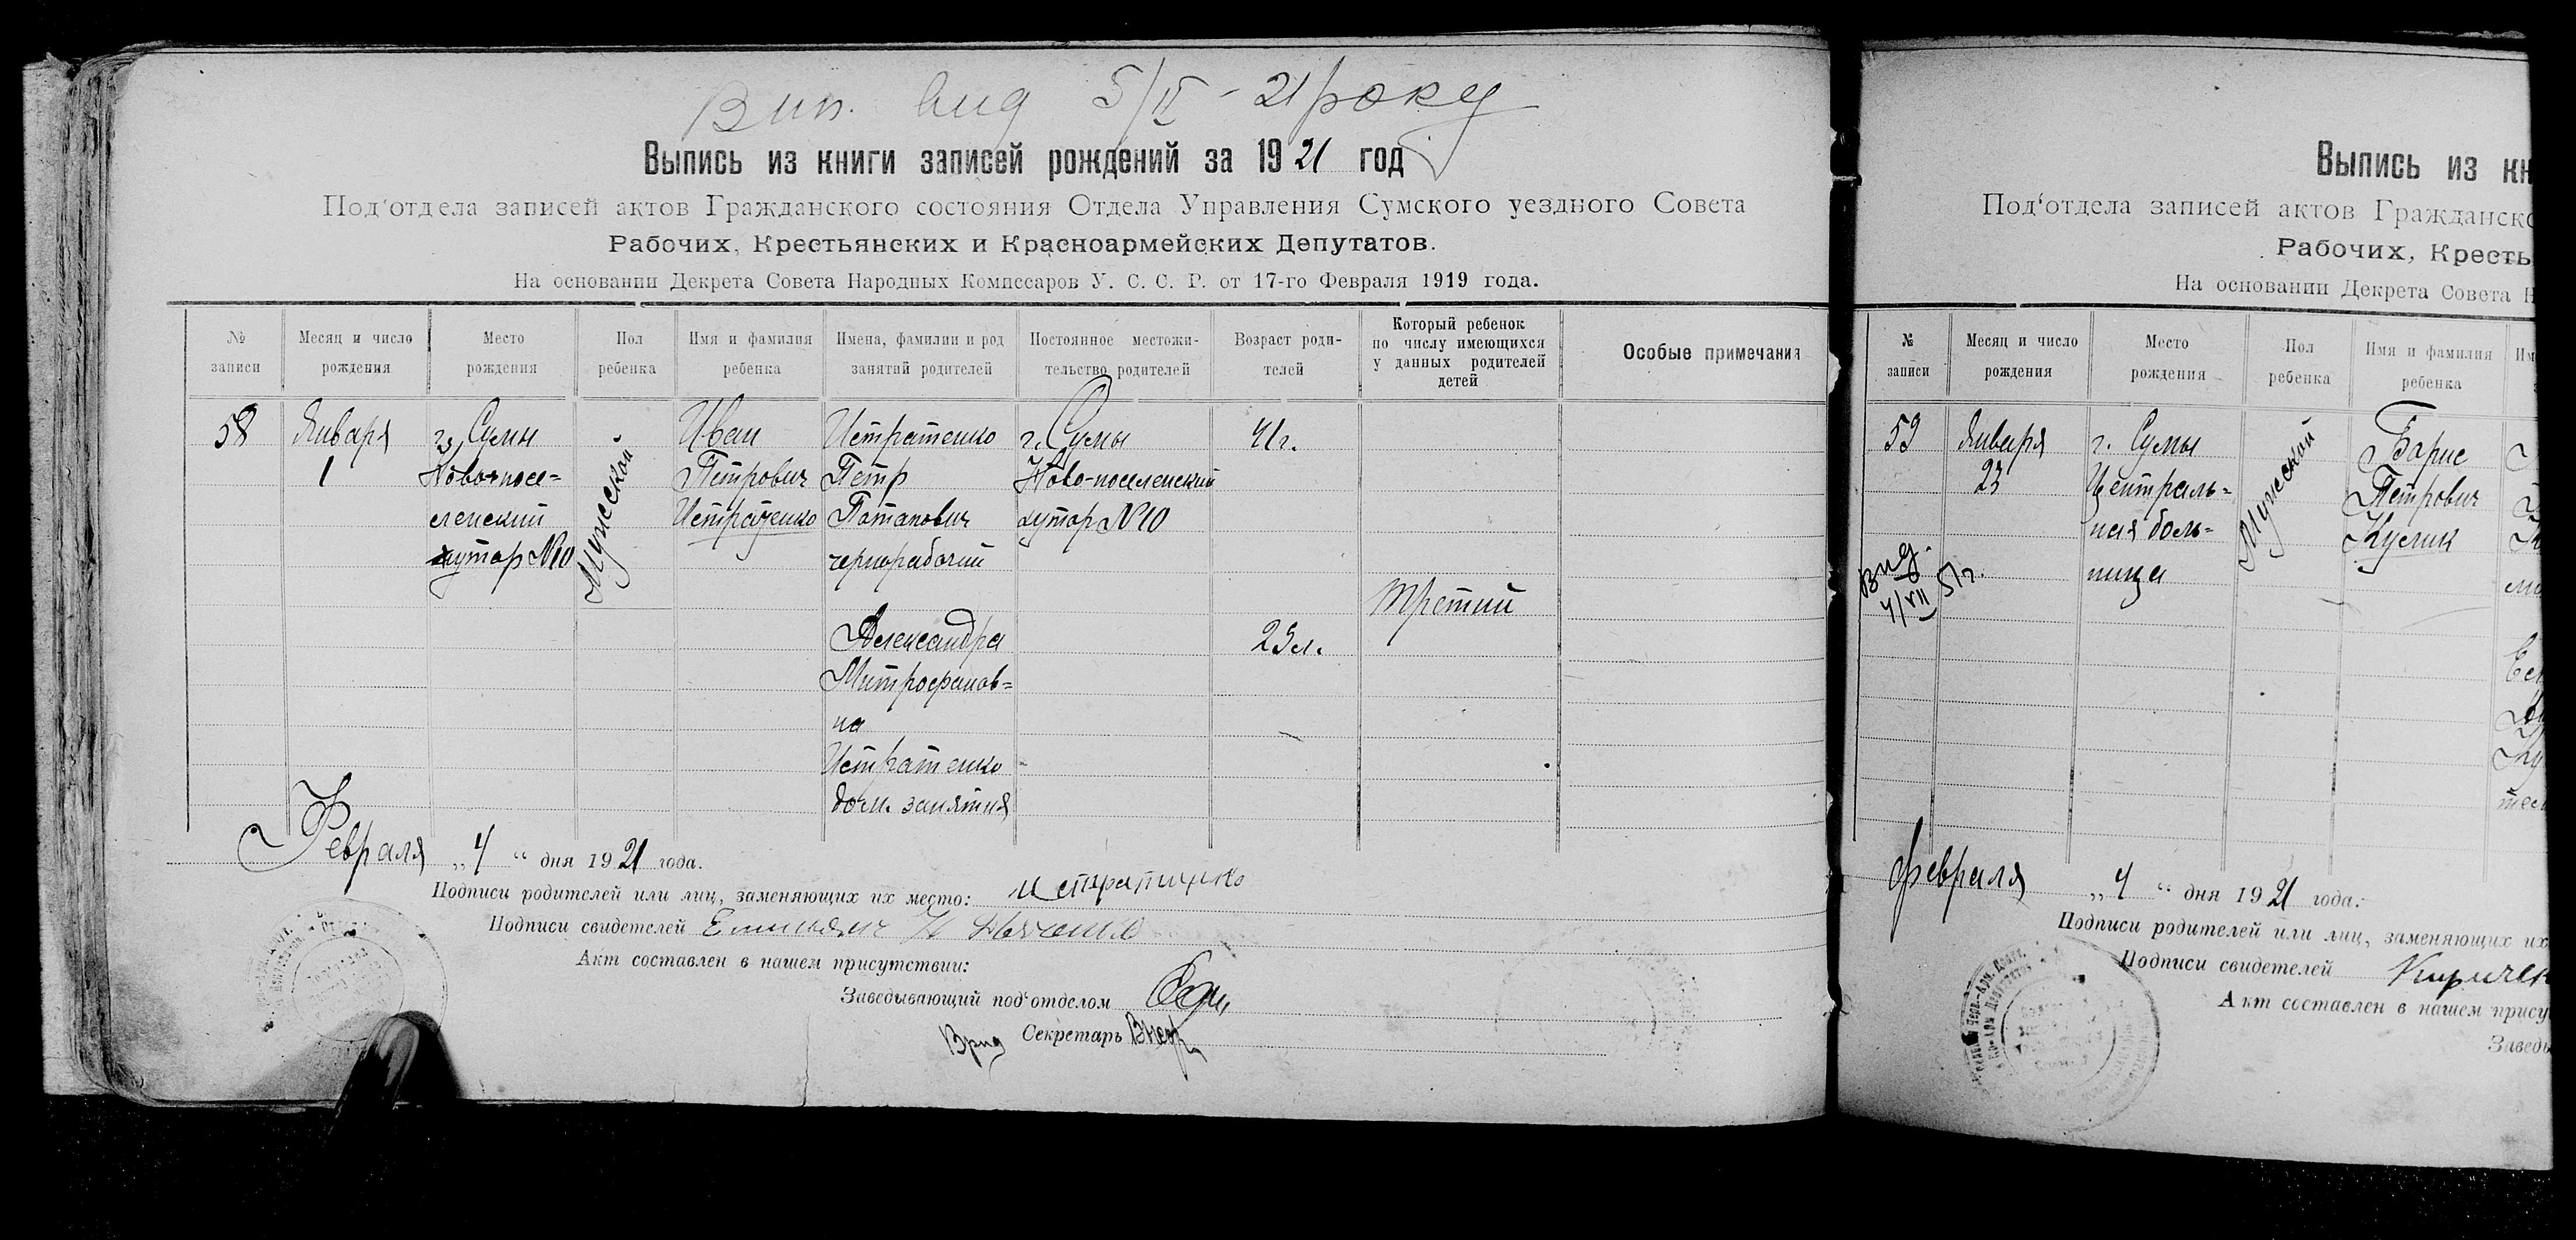 Вип. вид 5/II - 21 року
Выпись из книги записей рождений за 1921 год
Под‘отдела записей актов Гражданского состояния Отдела Управления Сумского уездного Совета
Рабочих, Крестьянских и Красноармейских Депутатов.
На основании Декрета Совета Народных Комиссаров У. С. С. Р. от 17-го Февраля 1919 года.
№ записи
Месяц и число рождения
Место рождения
Пол ребенка
Имя и фамилия ребенка
Имена, фамилии и род занятий родителей
Постоянное местожи-
тельство родителей
Возраст роди-
телей
Который ребенок
по числу имеющихся
у данных родителей
детей
Особые примечания
58
Января
1
г. Сумы
Ново-посе=
ленский
хутор №10
Мужеской
Иван
Петрович
Истратенко
Истратенко
Петр
Потапович
чернорабочий
Александра
Митрофанов=
на
Истратенко
дом. занятия
г. Сумы
Ново-поселенский
хутор №10
41г.
23л.
Третий
Февраля „4“ дня 1921 года.
Подписи родителей или лиц, заменяющих их место: Истратенко
Подписи свидетелей
Акт составлен в нашем присутствии:
Заведывающий под‘отделом
Врид Секретарь
Выпись из кн
Под‘отдела записей актов Гражданско
Рабочих, Кресть
На основании Декрета Совета Н
№ записи
Месяц и число рождения
Место рождения
Пол ребенка
Имя и фамилия ребенка
Им
59
Января
23
г. Сумы
Централь=
ная боль=
ница
Мужеской
Борис
Петрович
Кулик
Вид.
4/VII 51г.
Февраля „4“ дня 1921 года.
Подписи родителей или лиц, заменяющих их
Подписи свидетелей Кириче
Акт составлен в нашем прису
Заведы